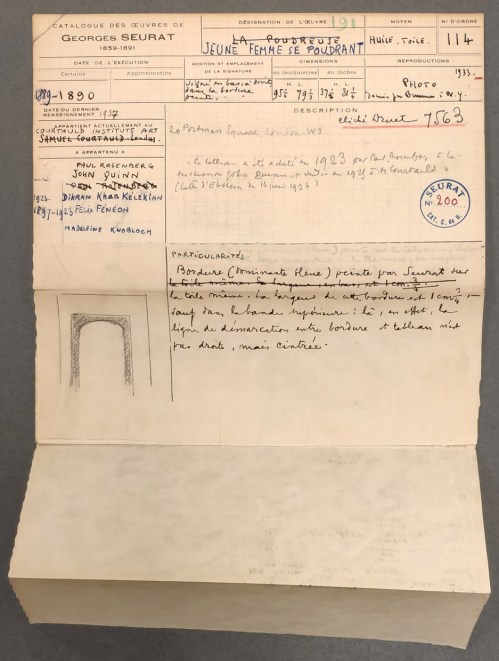 CATALOGUE DES ŒUVRES DE
GEORGES SEURAT
1859-1891
DÉSIGNATION DE L'ŒUVRE 191
LA POUDREUSE
JEUNE FEMME SE POUDRANT
MOYEN
HUILE. TOILE.
N° D'ORDRE
114
DATE DE L'EXÉCUTION
Certaine Approximative
1889-1890
MENTION ET EMPLACEMENT
DE LA SIGNATURE
Signé en bas, à droite
dans la bordure
peinte.
DIMENSIONS
en centimètres en inches
H. L. H. L.
95½ 79½ 37½ 31¼
REPRODUCTIONS
1933
PHOTO
DATE DU DERNIER
RENSEIGNEMENT 1937
APPARTIENT ACTUELLEMENT AU
COURTAULD INSTITUTE ART
SAMUEL COURTAULD. London.
A APPARTENU A
PAUL ROSENBERG
JOHN QUINN
PAUL ROSENBERG
DIKRAN KHAN KELEKIAN
1897-1923 FELIX FÉNÉON
MADELEINE KNOBLOCH
DESCRIPTION
cliché Druet 7563
20 Portman Square, London. W1
Le tableau a été acheté en 1923 par Paul Rosenberg à la
succession John Quinn et vendu en 192 à M. Courtauld
SEURAT
N° 200
CAT. C. de H.
PARTICULARITÉS:
Bordure (dominante bleue) peinte par Seurat sur
la toile même. La largeur en bas, est 1 cm. ¾
la toile même. La largeur de cette bordure est 1 cm ¾
sauf dans la bande supérieure: là, en effet, la
ligne de démarcation entre bordure et tableau n'est
pas droite, mais cintrée.